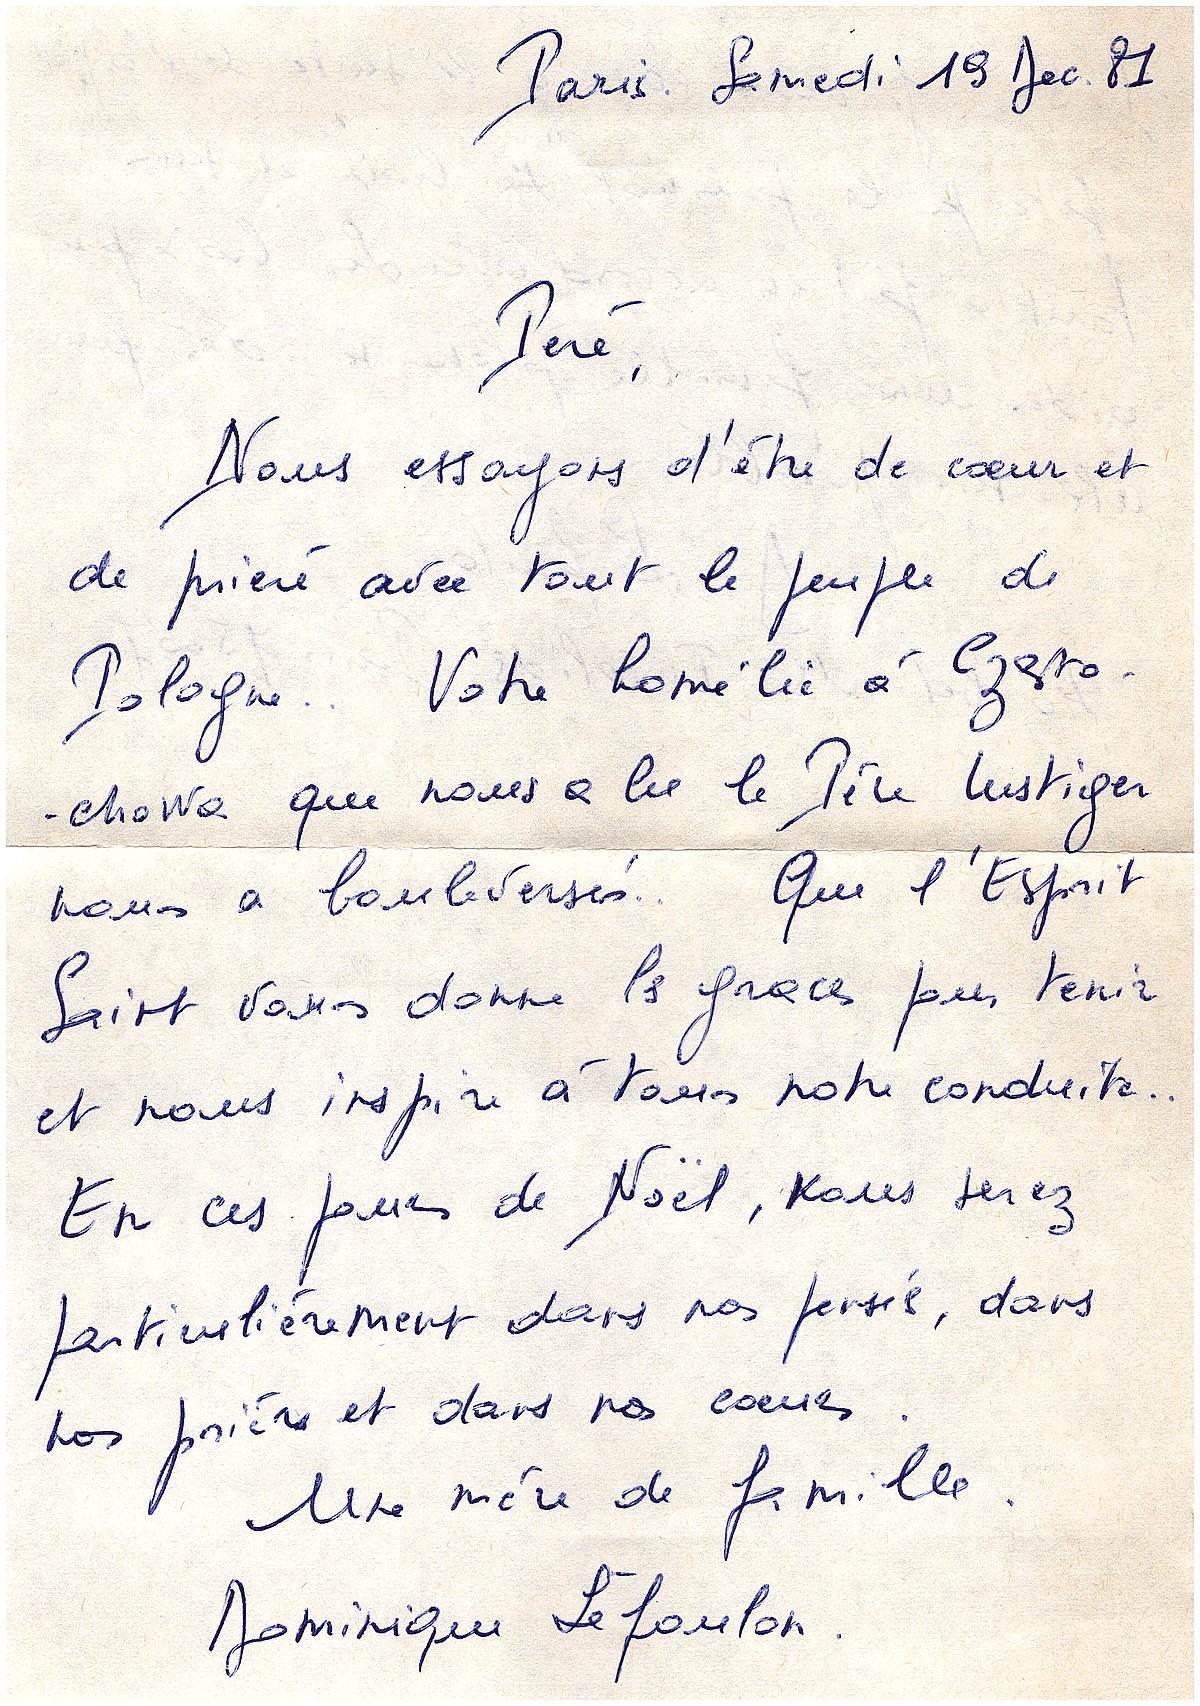 Paris. Samedi 19 Dec. 81
Peré,
Nous essayons d'être de cœur et
de prieré avec tout le peuple de
Pologne.. Votre homélie à Czesto-
-chowa que nous a lu le Père Lustiger
nous a bouleversés.. Que l'Esprit
Saint vous donne les graces pour tenir
et nous inspire à tous notre conduite..
En ces jours de Noël, vous serez
particulièrement dans nos pensés, dans
nos prières et dans nos cœurs.
Une mère de famille.
Dominique Léfoulon.